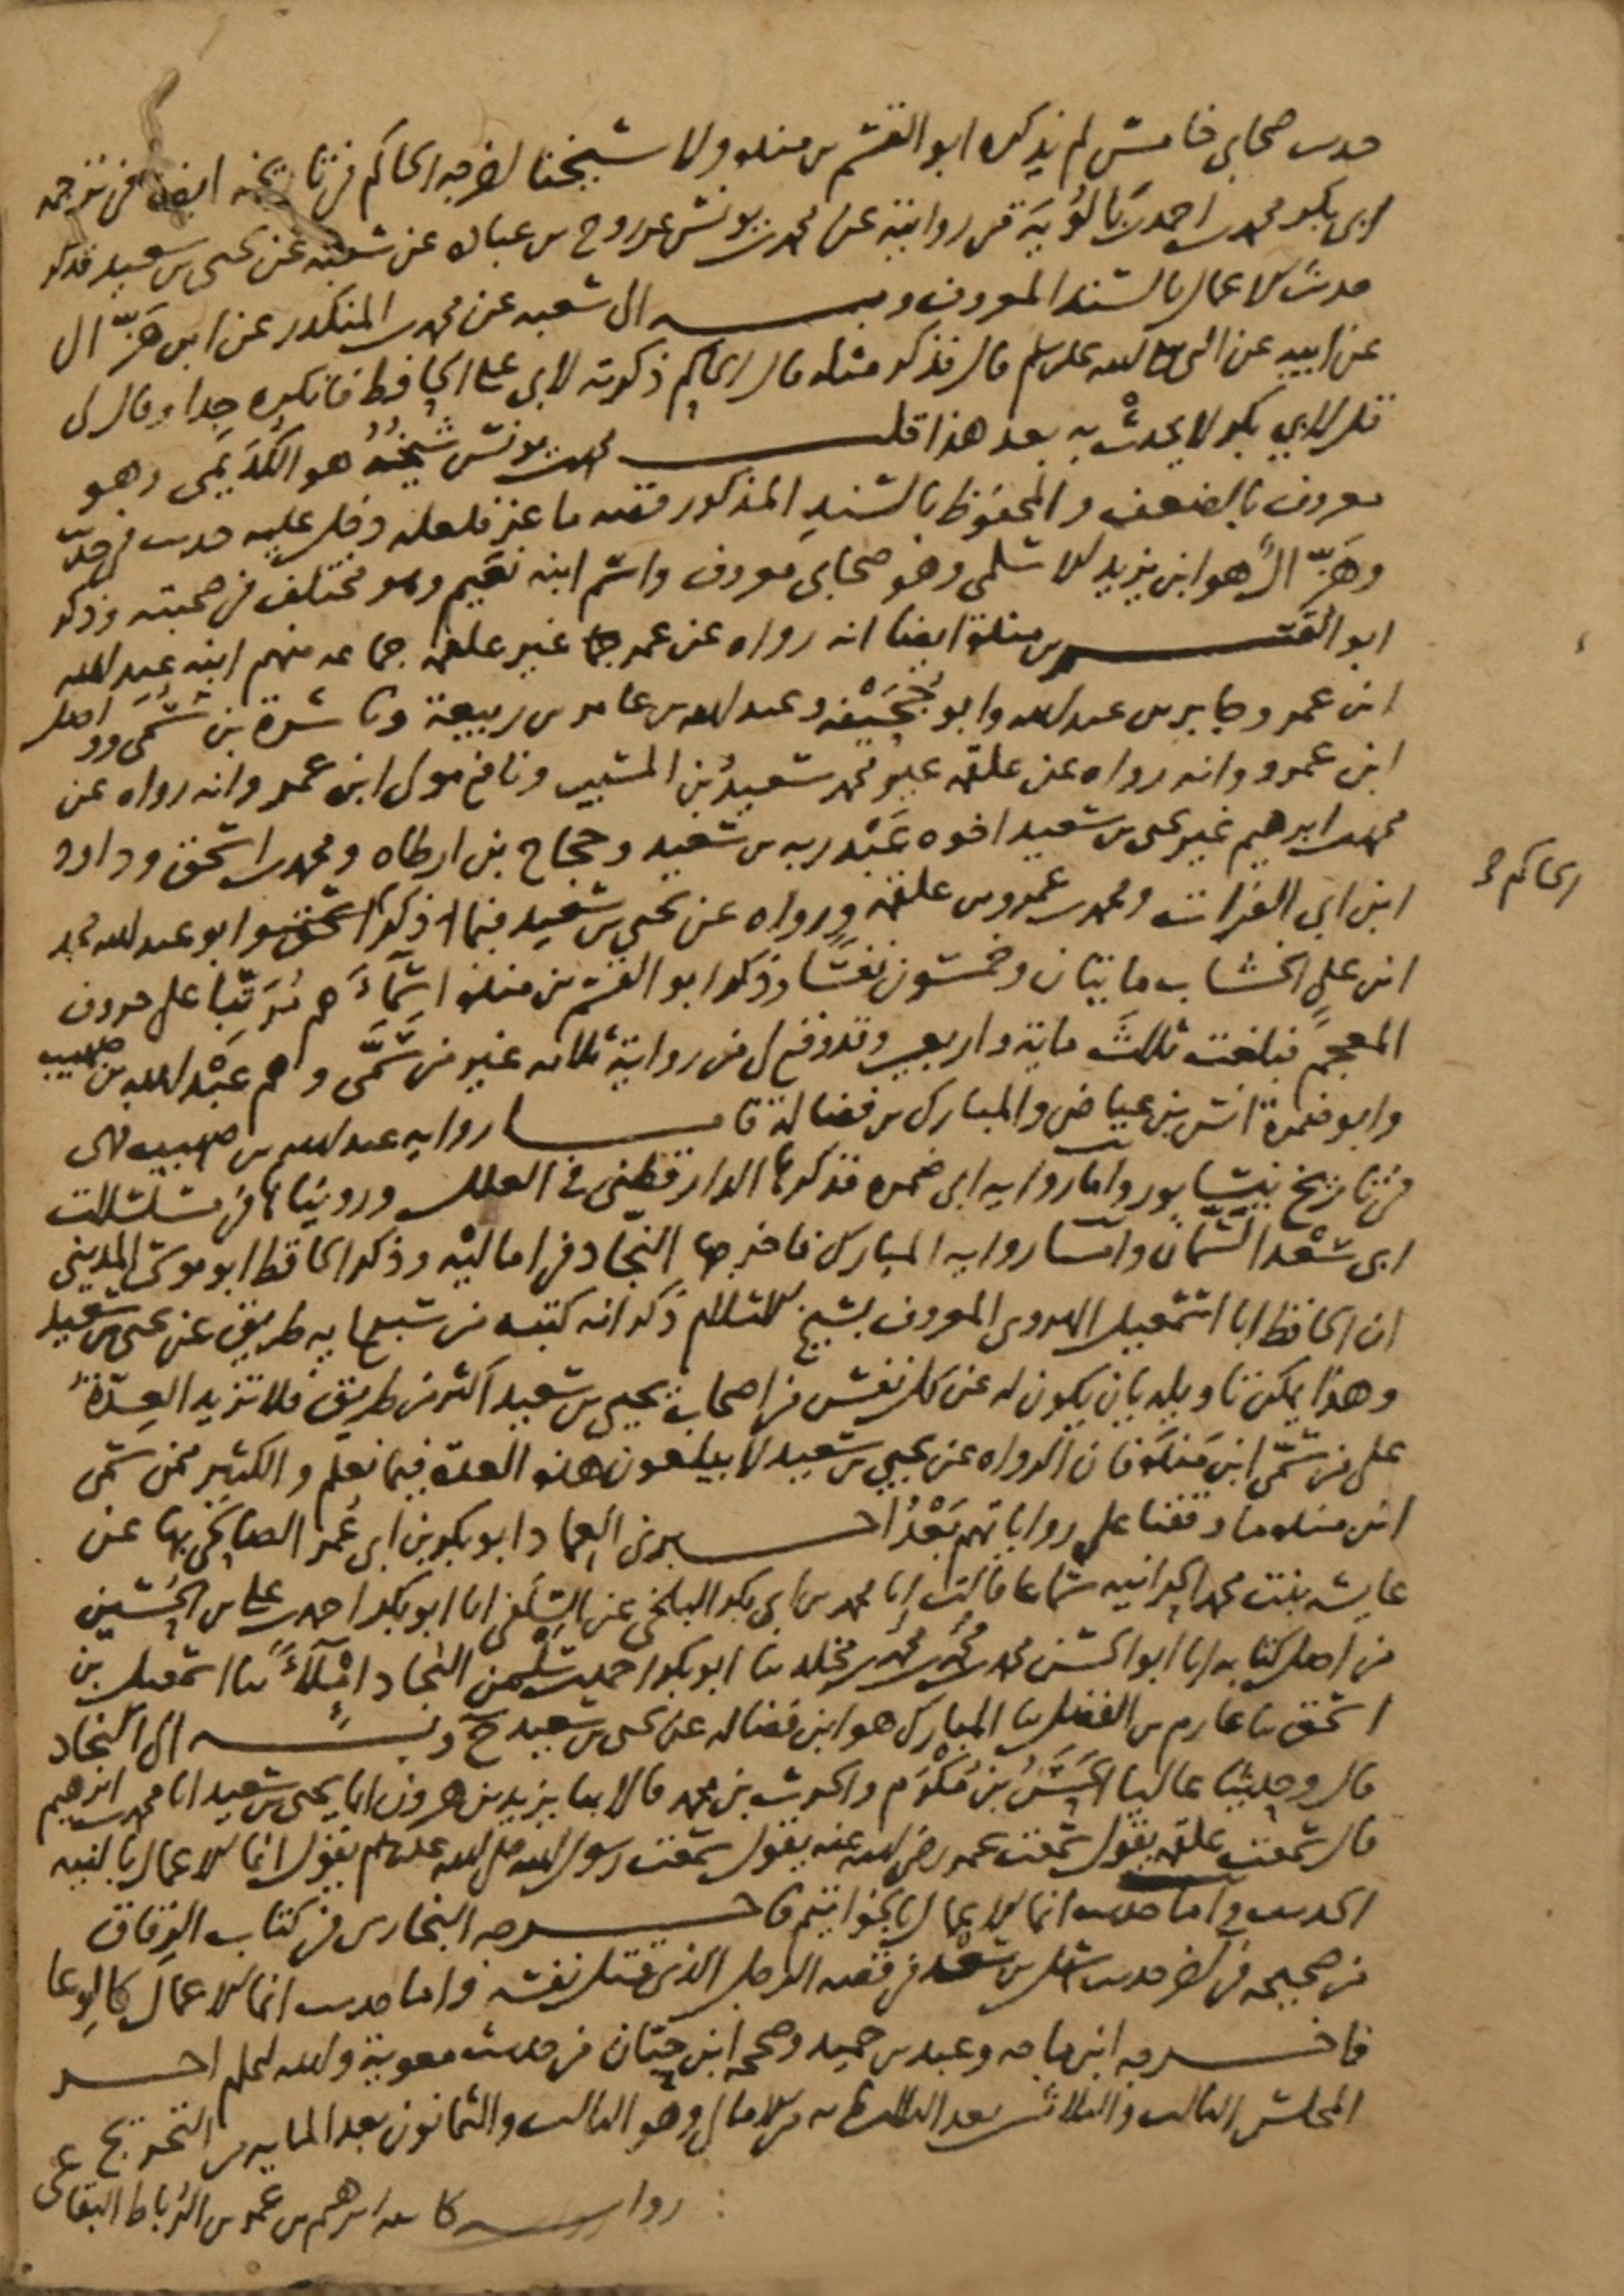 حدىث صحابي خامس لم يذكره ابو القسم بن منده ولا شيخنا اخرجه الحاكم في تاريخه ايضا في ترجمة
ابي بكر محمد بن احمد بن بالُوَيَة من روايته عن محمد بن يونس عن روح بن عبادة عن شعبة عن يحيى بن سعيد فذكر
حديث الاعمال بالسند المعروف وبه الى شعبه عن محمد بن المنكدر عن ابن هَزَّال
عن ابيه عن النبي صلى الله عليه وسلم قال فذكر مثله قال الحاكم ذكرته لابي علي الحافظ فانكره جدا وقال لي
قل لابي بكر لا يحدث به بعد هذا قلت محمد بن يونس شيخُهُ هو الكُدَيمي وهو
معروف بالضعف والمحفوظ بالسند المذكور قصه ماعز فلعله دخل عليه حديث في حديث
وهَزَّال هو ابن يزيد الاسلمي وهو صحابي معروف واسم ابنه نعيم وهو مختلف في صحبته وذكر
ابو القسم بن منده ايضا انه رواه عن عمر غير علقمه جماعه منهم ابنه عبد الله
ابن عمر وجابر بن عبد الله وابو جُحَيْفه وعبد الله بن عامر بن ربيعة وناشرة بن سُمَي وواصل
ابن عمرو وانه رواه عن علقمه غير محمد سعيدُ بن المسيب ونافع مولى ابن عمر وانه رواه عن
محمد بن ابرهيم غير يحيى بن سعيد اخوه عَبْد ربه بن سعيد وحجاج بن ارطاه ومحمد بن اسحق وداود
ابن ابي الفرات ومحمد بن عمرو بن علقمه ورواه عن يحيى بن سعيد فيما ذكر ابو عبد الله محمد
الحاكم
ابن علي الخشاب مايتان وخمسون نفسًا وذكر ابو القسم بن منده اسماءَهم مُرَتّبا على حروف
المعجم فبلغت ثلثَ ماية واربعين وقد وقع لي من رواية ثلاثه غير من سَمَّى وهم عَبْد الله بن صهيب
وابو ضمرة انس بن عياض والمبارك بن فضالة فاما روايه عبد الله بن صهيب فهي
في تاريخ نيسابور واما روايه ابي ضمره فذكرها الدارقطني في العلل ورويناها في مسلسلات
ابي سَعْد السَّمان واما روايه المبارك فاخرجها النجّاد في اماليْه وذكر الحافظ ابو موسى المديني
ان الحافظ ابا اسمعيل الهروي المعروف بشيخ الاسلام ذكر انه كتبه من سبعمايه طريق عن يحيى بن سعيد
وهذا يمكن تاويله بان يكون له عن كل نفس من اصحاب يحيى بن سعيد اكثر من طريق فلا تزيد العِدّةُ
على من سَمّى ابن مَندَه فان الرواه عن يحيى بن سعيد لا يبلغون هذه العدة فيما نعلم والكثير ممن سمى
ابن منده ما وقفنا على رواياتهم بَعْدُ اخبرني العماد ابو بكر بن ابي عُمر الصالحي بها عن
عايشه بنت محمد الحرانيه سماعا قالت انا محمد بن ابي بكر البلخي عن السِّلَفي انا ابو بكر احمد بن علي بن الحُسَين
من اصل كتابه انا ابو الحسن محمد بن محمدِ بن محمدِ بن مخلد ثنا ابو بكر احمد بن سَلْمن النجاد امْلآءً ثنا اسمعيل بن
اسحق ثنا عارم بن الفضل ثنا المبارك هو ابن فضاله عن يحيى بن سعيد ح وبه الى النجاد
قال وحدثنا عاليا الحَسَنُ بن مُكْرَم والحرث بن محمد قالا ثنا يزيد بن هرون انا يحيى بن سعيد انا محمد بن ابرهيم
قال سمعت علقمه يقول سمعت عمر رضي الله عنه يقول سمعت رسول الله صلى الله عليه وسلم يقول انما الاعمال بالنيه
الحديث واما حديث انما الاعمال بالخواتيم فاخرجه البخاري في كتاب الرقاق
من صحيحه في اخر حديث سهل بن سعْد في قصه الرجل الذي قتل نفسه واما حديث انما الاعمالُ كالوِعا
فاخرجه ابن ماجه وعبد بن حميد وصححه ابن حِبّان من حديث معوية والله اعلم اخر
المجلس الثالث والثلاثين بعد الثلثمايه من الامالي وهو الثالث والثمانون بعد المايه من التخريج
روايه كاتبه ابرهيم بن عمر بن الرُّباط البقاعي عنه